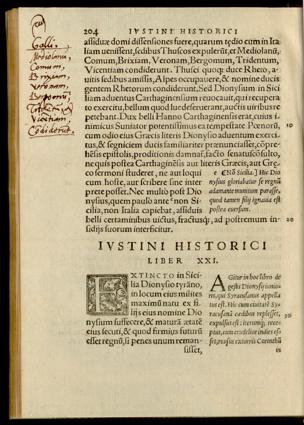 204 IVSTINI HISTORICI
Galli
Mediolanū,
Comum,
Brixiam,
Veronam,
Vicetiam,
Condiderūt.
assiduæ domi dissensiones fuere, quarum tedio cum in Ita
liam venissent, sedibus Thuscos expulerūt, et Mediolanū,
Comum, Brixiam, Veronam, Bergomum, Tridentum,
Vicentiam condiderunt. Thusci quoq; duce Rheto, a-
uitis sedibus amissis, Alpes occupauere, & ex nomine duci
gentem Rhetorum condiderunt. Sed Dionysium in Sici
liam aduentus Carthaginensium reuocauit, qui recupera
to exercitu, bellum quod deseruerant, auctis uiribus re-
petebant. Dux belli Hanno Carthaginensis erat, cuius i-
nimicus Suniator potentissimus ea tempestate Pœnorū,
cum odio eius Græcis literis Dionysio aduentum exerci-
tus, & segniciem ducis familiariter prænunciasset, cōpre
hēsis epistolis, proditionis damnat, facto senatusconsulto,
ne quis postea Carthaginensis aut literis Græcis, aut Græ-
co sermoni studeret, ne aut loqui
cum hoste, aut scribere sine inter
prete posset. Nec multo post Dio
nysius, quem paulo ante non Si-
cilia, non Italia capiebat, assiduis
belli certaminibus uictus, fractusq;, ad postremum in-
sidijs suorum interficitur.
Nō Sicilia.] Hic Dio
nysius gloriabatur se regnū
adamante munitum parasse,
quod tamen filij ignauia est
postea euersum.
IVSTINI HISTORICI
LIBER XXI.
EXTINCTO in Sici
lia Dionysio tyrāno,
in locum eius milites
maximū natu ex fi-
lijs eius nomine Dio
nysium suffecere, & naturā ætatē
eius secuti, & quod firmius futurū
esset regnū, si penes unum reman-
sisset,
Agitur in hoc libro de
gestis Dionysij iunio-
ris, qui Syracusanus appella-
tus est. Hic cum ciuitatē Sy-
racusanā cædibus replesset,
expulsus est: iterumq́; recep-